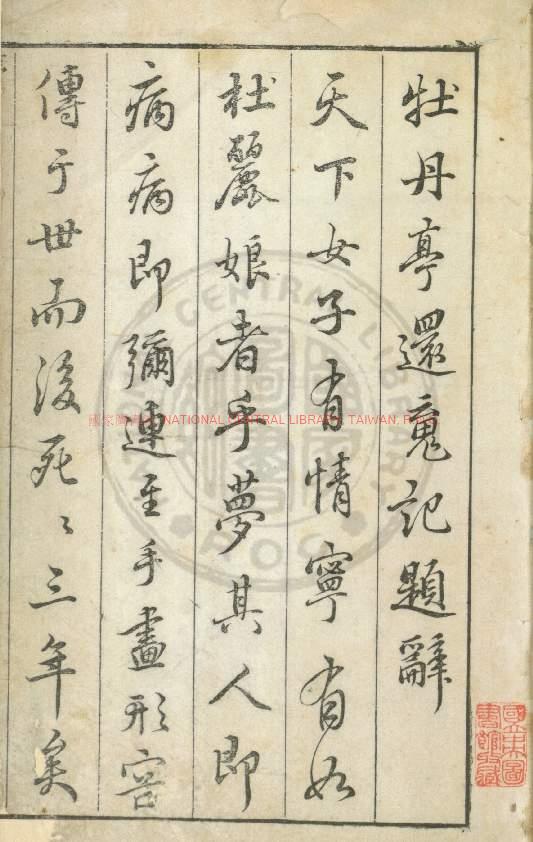 牡丹亭還魂記題辭
天下女子有情寧有如
杜麗娘者乎夢其人即
病病即彌連至手畫形容
傳于世而後死〻三年矣
國家圖書館藏
國家圖書館 NATIONAL CENTRAL LIBRARY, TAIWAN, R.O.C
NATIONAL CENTRAL LIBRARY
ROC